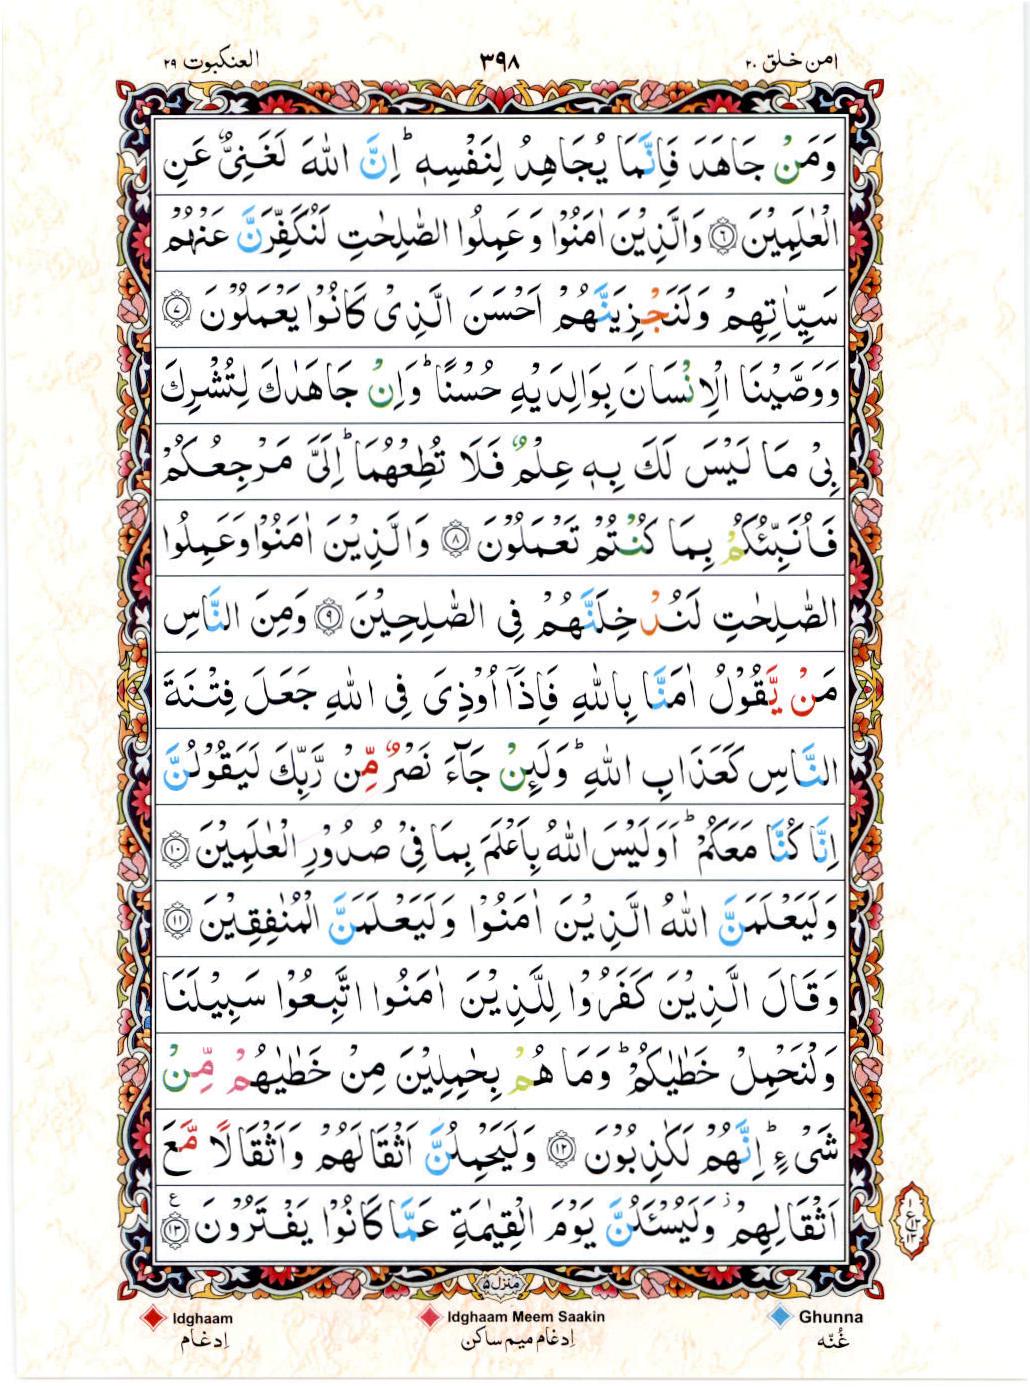 امن خلق ٢٠
٣٩٨
العنكبوت ٢٩
وَمَنْ جَاهَدَ فَاِنَّمَا يُجَاهِدُ لِنَفْسِهٖ ؕ اِنَّ اللّٰهَ لَغَنِىٌّ عَنِ
الْعٰلَمِيْنَ ۝٦ وَالَّذِيْنَ اٰمَنُوْا وَعَمِلُوا الصّٰلِحٰتِ لَنُكَفِّرَنَّ عَنْهُمْ
سَيِّاٰتِهِمْ وَلَنَجْزِيَنَّهُمْ اَحْسَنَ الَّذِىْ كَانُوْا يَعْمَلُوْنَ ۝٧
وَوَصَّيْنَا الْاِنْسَانَ بِوَالِدَيْهِ حُسْنًا ؕ وَاِنْ جَاهَدٰكَ لِتُشْرِكَ
بِىْ مَا لَيْسَ لَكَ بِهٖ عِلْمٌ فَلَا تُطِعْهُمَا ؕ اِلَىَّ مَرْجِعُكُمْ
فَاُنَبِّئُكُمْ بِمَا كُنْتُمْ تَعْمَلُوْنَ ۝٨ وَالَّذِيْنَ اٰمَنُوْا وَعَمِلُوا
الصّٰلِحٰتِ لَنُدْخِلَنَّهُمْ فِى الصّٰلِحِيْنَ ۝٩ وَمِنَ النَّاسِ
مَنْ يَّقُوْلُ اٰمَنَّا بِاللّٰهِ فَاِذَاۤ اُوْذِىَ فِى اللّٰهِ جَعَلَ فِتْنَةَ
النَّاسِ كَعَذَابِ اللّٰهِ ؕ وَلَئِنْ جَآءَ نَصْرٌ مِّنْ رَّبِّكَ لَيَقُوْلُنَّ
اِنَّا كُنَّا مَعَكُمْ ؕ اَوَلَيْسَ اللّٰهُ بِاَعْلَمَ بِمَا فِىْ صُدُوْرِ الْعٰلَمِيْنَ ۝١٠
وَلَيَعْلَمَنَّ اللّٰهُ الَّذِيْنَ اٰمَنُوْا وَلَيَعْلَمَنَّ الْمُنٰفِقِيْنَ ۝١١
وَقَالَ الَّذِيْنَ كَفَرُوْا لِلَّذِيْنَ اٰمَنُوا اتَّبِعُوْا سَبِيْلَنَا
وَلْنَحْمِلْ خَطٰيٰكُمْ ؕ وَمَا هُمْ بِحٰمِلِيْنَ مِنْ خَطٰيٰهُمْ مِّنْ
شَىْءٍ ؕ اِنَّهُمْ لَكٰذِبُوْنَ ۝١٢ وَلَيَحْمِلُنَّ اَثْقَالَهُمْ وَاَثْقَالًا مَّعَ
اَثْقَالِهِمْ ز وَلَيُسْئَلُنَّ يَوْمَ الْقِيٰمَةِ عَمَّا كَانُوْا يَفْتَرُوْنَ ۝١٣ ع
١
ع
١٣
١٣
منزل ٥
Idghaam
Idghaam Meem Saakin
Ghunna
اِدغام
اِدغام میم ساکن
غُنّه